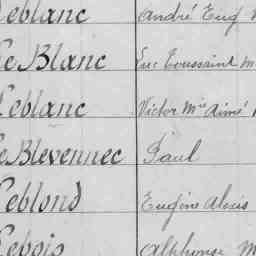 Leblanc André Eug
Le Blanc Luc Toussaint M
Leblanc Victor Mie Aimé
Le Blevennec Paul
Leblond Eugène Alexis
Lebois Alphonse M